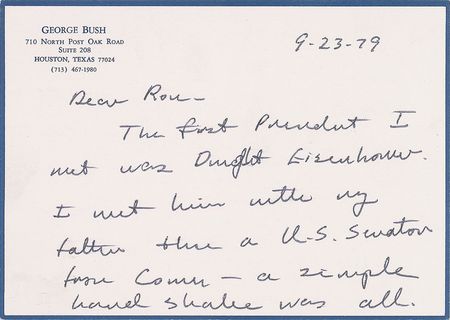 GEORGE BUSH
710 NORTH POST OAK ROAD
SUITE 208
HOUSTON, TEXAS 77024
(713) 467-1980
9-23-79
Dear Ron-
The first President I
met was Dwight Eisenhower.
I met him with my
father then a U.S. Senator
from Conn - a simple
hand shake was all.